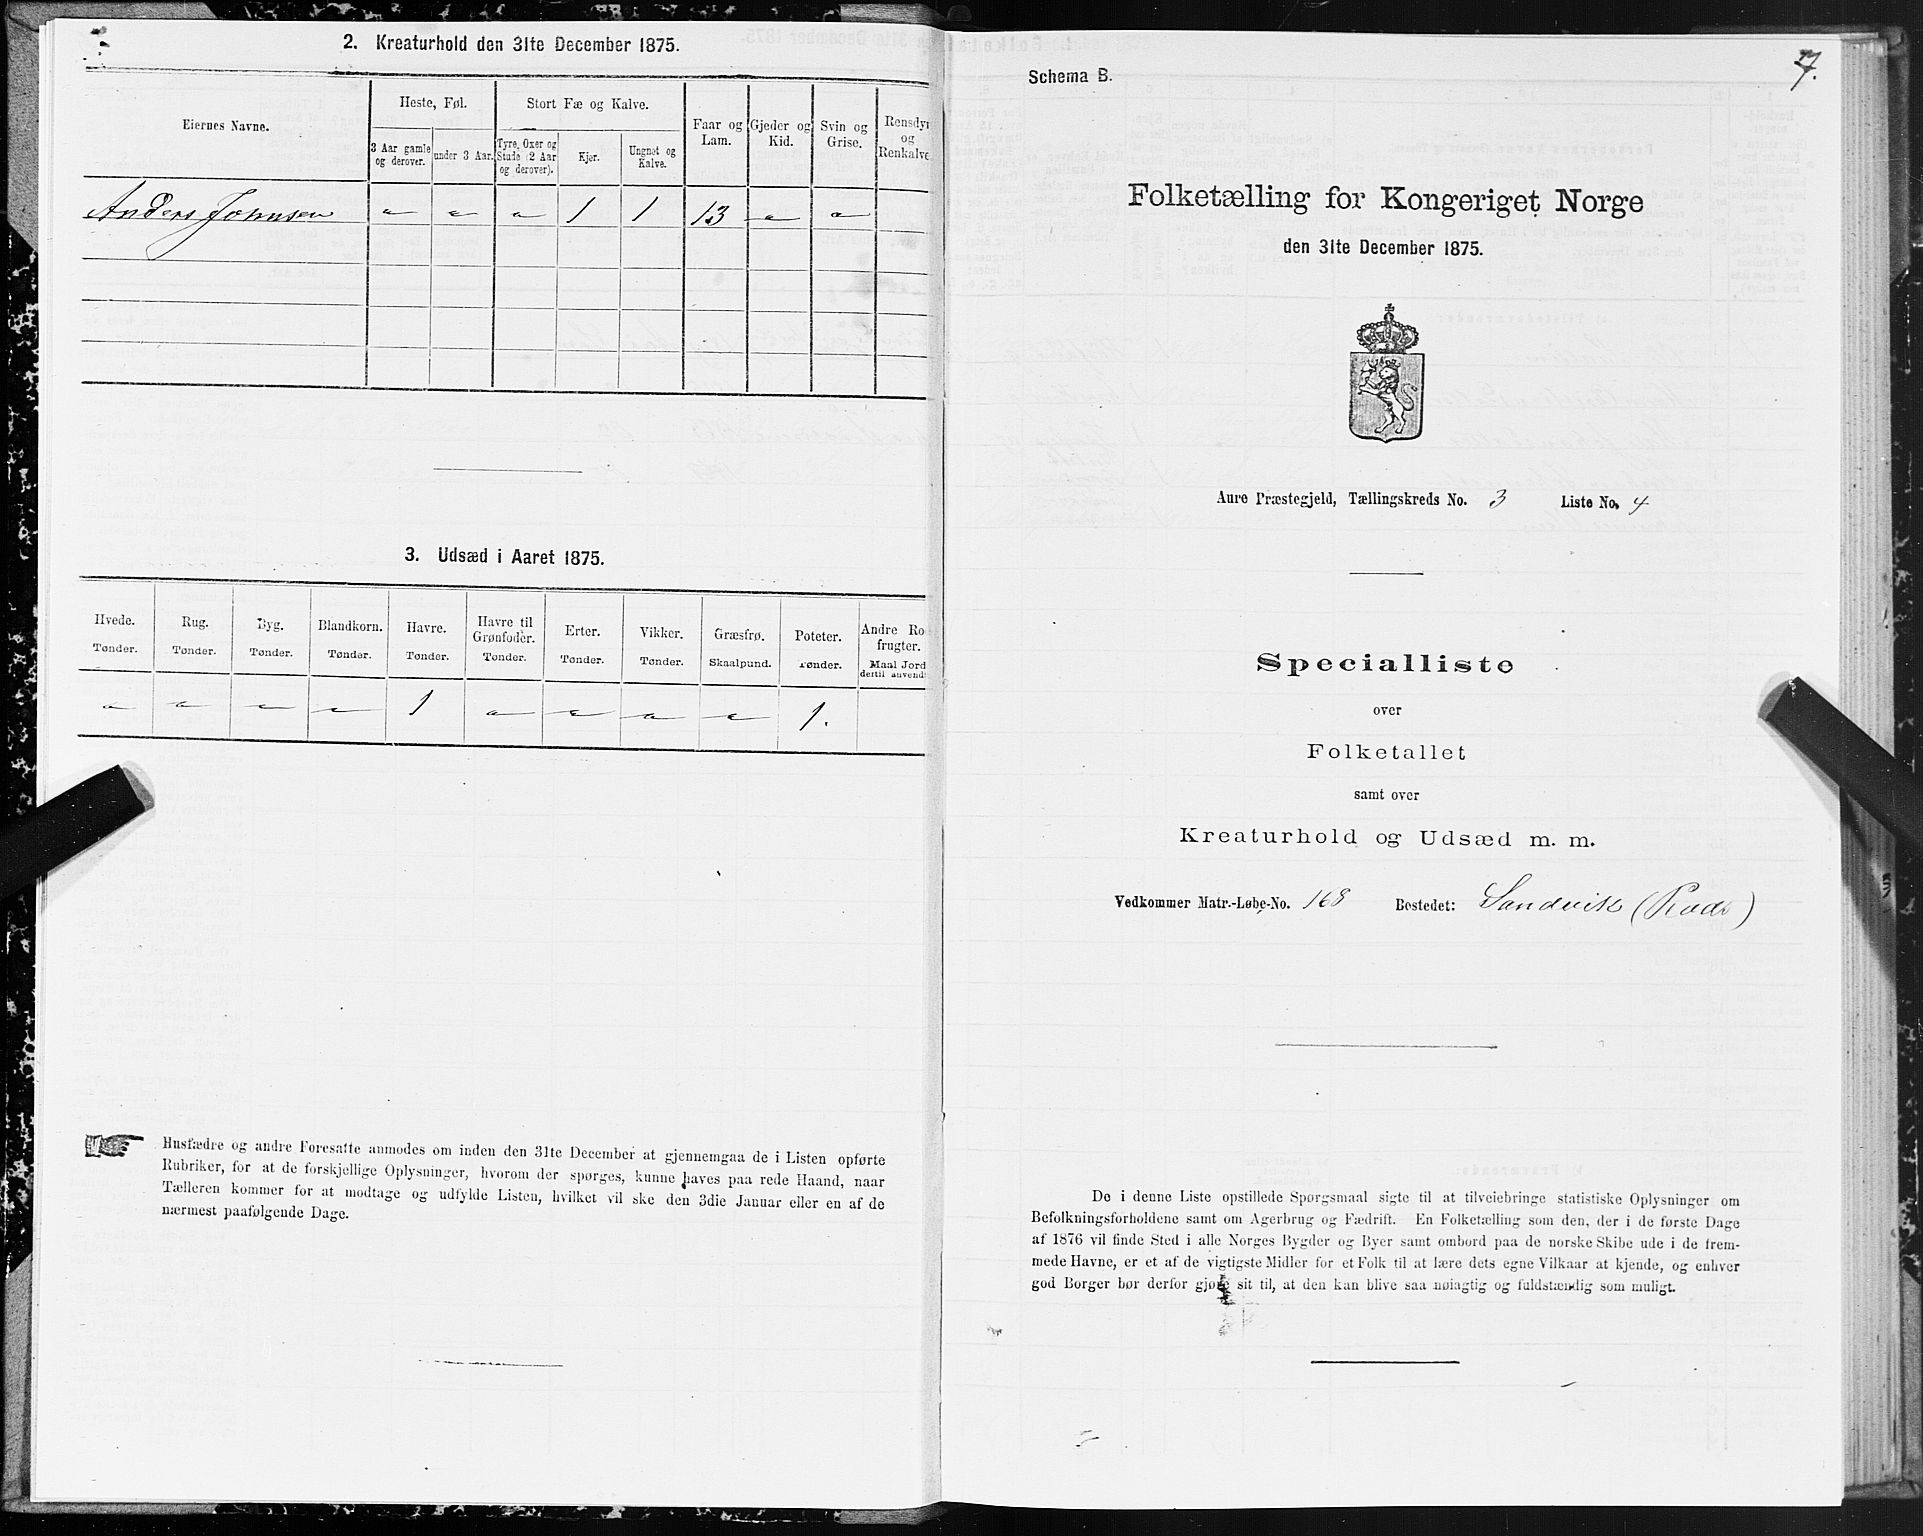 2. Kreaturhold den 31te December 1875.
Eiernes Navne.
Heste, Føl.
Stort Fæ og Kalve.
Faar og Lam.
Gjeder og Kid.
Svin og Grise.
Rensdyr og Renkalve
3 Aar gamle og derover.
under 3 Aar.
Tyre, Oxer og Stude (2 Aar og derover).
Kjør.
Ungnøt og Kalve.
Anders Johnsen " " " 1 1 13 " "
3. Udsæd i Aaret 1875.
Hvede. Rug. Byg. Blandkorn. Havre. Havre til Grønfoder. Erter. Vikker. Græsfrø. Poteter. Andre Ro- frugter.
Tønder. Tønder. Tønder. Tønder. Tønder. Tønder. Tønder. Tønder. Skaalpund. Tønder. Maal Jord dertil anvendt
" " " " 1 " " " " 1.
Husfædre og andre Foresatte anmodes om inden den 31te December at gjennemgaa de i Listen opførte
Rubriker, for at de forskjellige Oplysninger, hvorom der spørges, kunne haves paa rede Haand, naar
Tælleren kommer for at modtage og udfylde Listen, hvilket vil ske den 3die Januar eller en af de
nærmest paafølgende Dage.
7.
Schema B.
Folketælling for Kongeriget Norge
den 31te December 1875.
Aure Præstegjeld, Tællingskreds No. 3 Liste No. 4
Specialliste
over
Folketallet
samt over
Kreaturhold og Udsæd m. m.
Vedkommer Matr.-Løbe-No. 168 Bostedet: Sandvik
De i denne Liste opstillede Spørgsmaal sigte til at tilveiebringe statistiske Oplysninger om
Befolkningsforholdene samt om Agerbrug og Fædrift. En Folketælling som den, der i de første Dage
af 1876 vil finde Sted i alle Norges Bygder og Byer samt ombord paa de norske Skibe ude i de frem-
mede Havne, er et af de vigtigste Midler for et Folk til at lære dets egne Vilkaar at kjende, og enhver
god Borger bør derfor gjøre sit til, at den kan blive saa nøiagtig og fuldstændig som muligt.